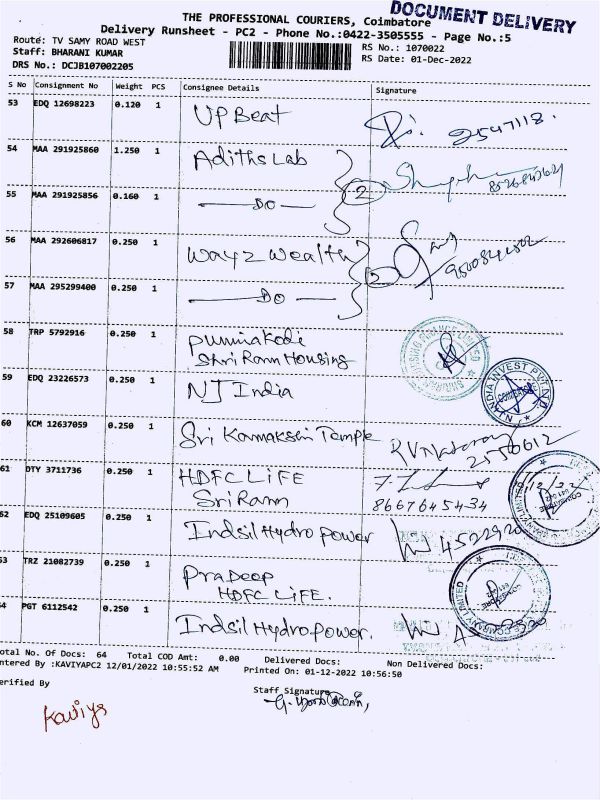 DOCUMENT DELIVERY
THE PROFESSIONAL COURIERS, Coimbatore
Delivery Runsheet - PC2 - Phone No.:0422-3505555 - Page No.:5
Route: TV SAMY ROAD WEST
RS No.: 1070022
Staff: BHARANI KUMAR
RS Date: 01-Dec-2022
DRS No.: DCJB107002205
S No Consignment No Weight PCS Consignee Details Signature
53 EDQ 12698223 0.120 1 UP Beat 2547118.
54 MAA 291925860 1.250 1 Adiths Lab 2
55 MAA 291925856 0.160 1 DO
56 MAA 292606817 0.250 1 Way2Wealth 2
57 MAA 295299400 0.250 1 DO
58 TRP 5792916 0.250 1 Punnia Kodi
Shri Ram Housing
59 EDQ 23226573 0.250 1 NJ India
60 KCM 12637059 0.250 1 Sri Kamakshi Temple
2550612
61 DTY 3711736 0.250 1 HDFC LIFE
Sri Ram 8667645434
62 EDQ 25109605 0.250 1 Indsil Hydro power 4522920
63 TRZ 21082739 0.250 1 Pradeep
HDFC LIFE.
64 PGT 6112542 0.250 1 Indsil Hydro power.
Total No. Of Docs: 64 Total COD Amt: 0.00 Delivered Docs: Non Delivered Docs:
Entered By :KAVIYAPC2 12/01/2022 10:55:52 AM Printed On: 01-12-2022 10:56:50
Verified By Staff Signature
Kaviya